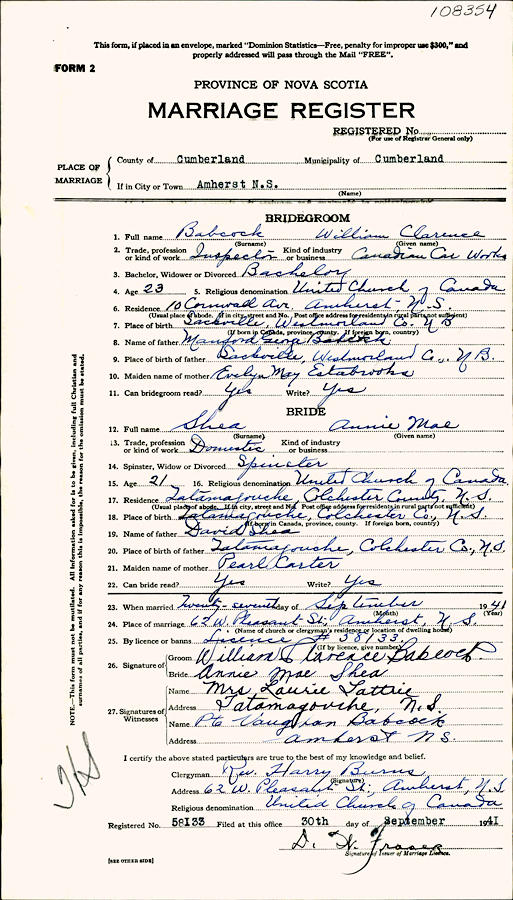 108354
This form, if placed in an envelope, marked "Dominion Statistics—Free, penalty for improper use $300," and
properly addressed will pass through the Mail "FREE".
FORM 2
PROVINCE OF NOVA SCOTIA
MARRIAGE REGISTER
REGISTERED No.
(For use of Registrar General only)
PLACE OF MARRIAGE
County of Cumberland Municipality of Cumberland
If in City or Town Amherst N.S.
(Name)
BRIDEGROOM
1. Full name Babcock William Clarence
(Surname) (Given name)
2. Trade, profession or kind of work Inspector Kind of industry or business Canadian Car Works
3. Bachelor, Widower or Divorced Bachelor
4. Age 23 5. Religious denomination United Church of Canada
6. Residence 10 Cornwall Av. Amherst N.S.
(Usual place of abode. If in city, street and No. Post office address for residents in rural parts not sufficient)
7. Place of birth Sackville, Westmorland Co. N B
(If born in Canada, province, county. If foreign born, country)
8. Name of father Manford Babcock
9. Place of birth of father Sackville, Westmorland Co., N.B.
10. Maiden name of mother Evelyn May Estabrooks
11. Can bridegroom read? Yes Write? Yes
BRIDE
12. Full name Shea Annie Mae
(Surname) (Given name)
13. Trade, profession or kind of work Domestic Kind of industry or business
14. Spinster, Widow or Divorced Spinster
15. Age 21 16. Religious denomination United Church of Canada
17. Residence Tatamagouche, Colchester County, N.S.
(Usual place of abode. If in city, street and No. Post office address for residents in rural parts not sufficient)
18. Place of birth Tatamagouche, Colchester Co., N.S.
(If born in Canada, province, county. If foreign born, country)
19. Name of father David Shea
20. Place of birth of father Tatamagouche, Colchester Co., N.S.
21. Maiden name of mother Pearl Carter
22. Can bride read? Yes Write? Yes
23. When married Twenty-seventh day of September 1941
(Month)
24. Place of marriage 62 W. Pleasant St. Amherst, N.S.
(Name of church or clergyman's residence or location of dwelling house)
25. By licence or banns Licence # 58133
(If by licence, give number)
26. Signature of Groom William Clarence Babcock
Bride Annie Mae Shea
27. Signatures of Witnesses
Name Mrs. Laurie Tattrie
Address Tatamagouche, N.S.
Name Pte Vaughan Babcock
Address Amherst N.S.
I certify the above stated particulars are true to the best of my knowledge and belief.
Clergyman Rev. Harry Burns
(Signature)
Address 62 W. Pleasant St., Amherst, N.S
Religious denomination United Church of Canada
Registered No. 58133 Filed at this office 30th day of September 1941
D. W. Fraser
Signature of Issuer of Marriage Licence.
[SEE OTHER SIDE]
NOTE.—This form must not be mutilated. All information asked for is to be given, including full Christian and
surnames of all parties, and if for any reason this is impossible, the reason for the omission must be stated.